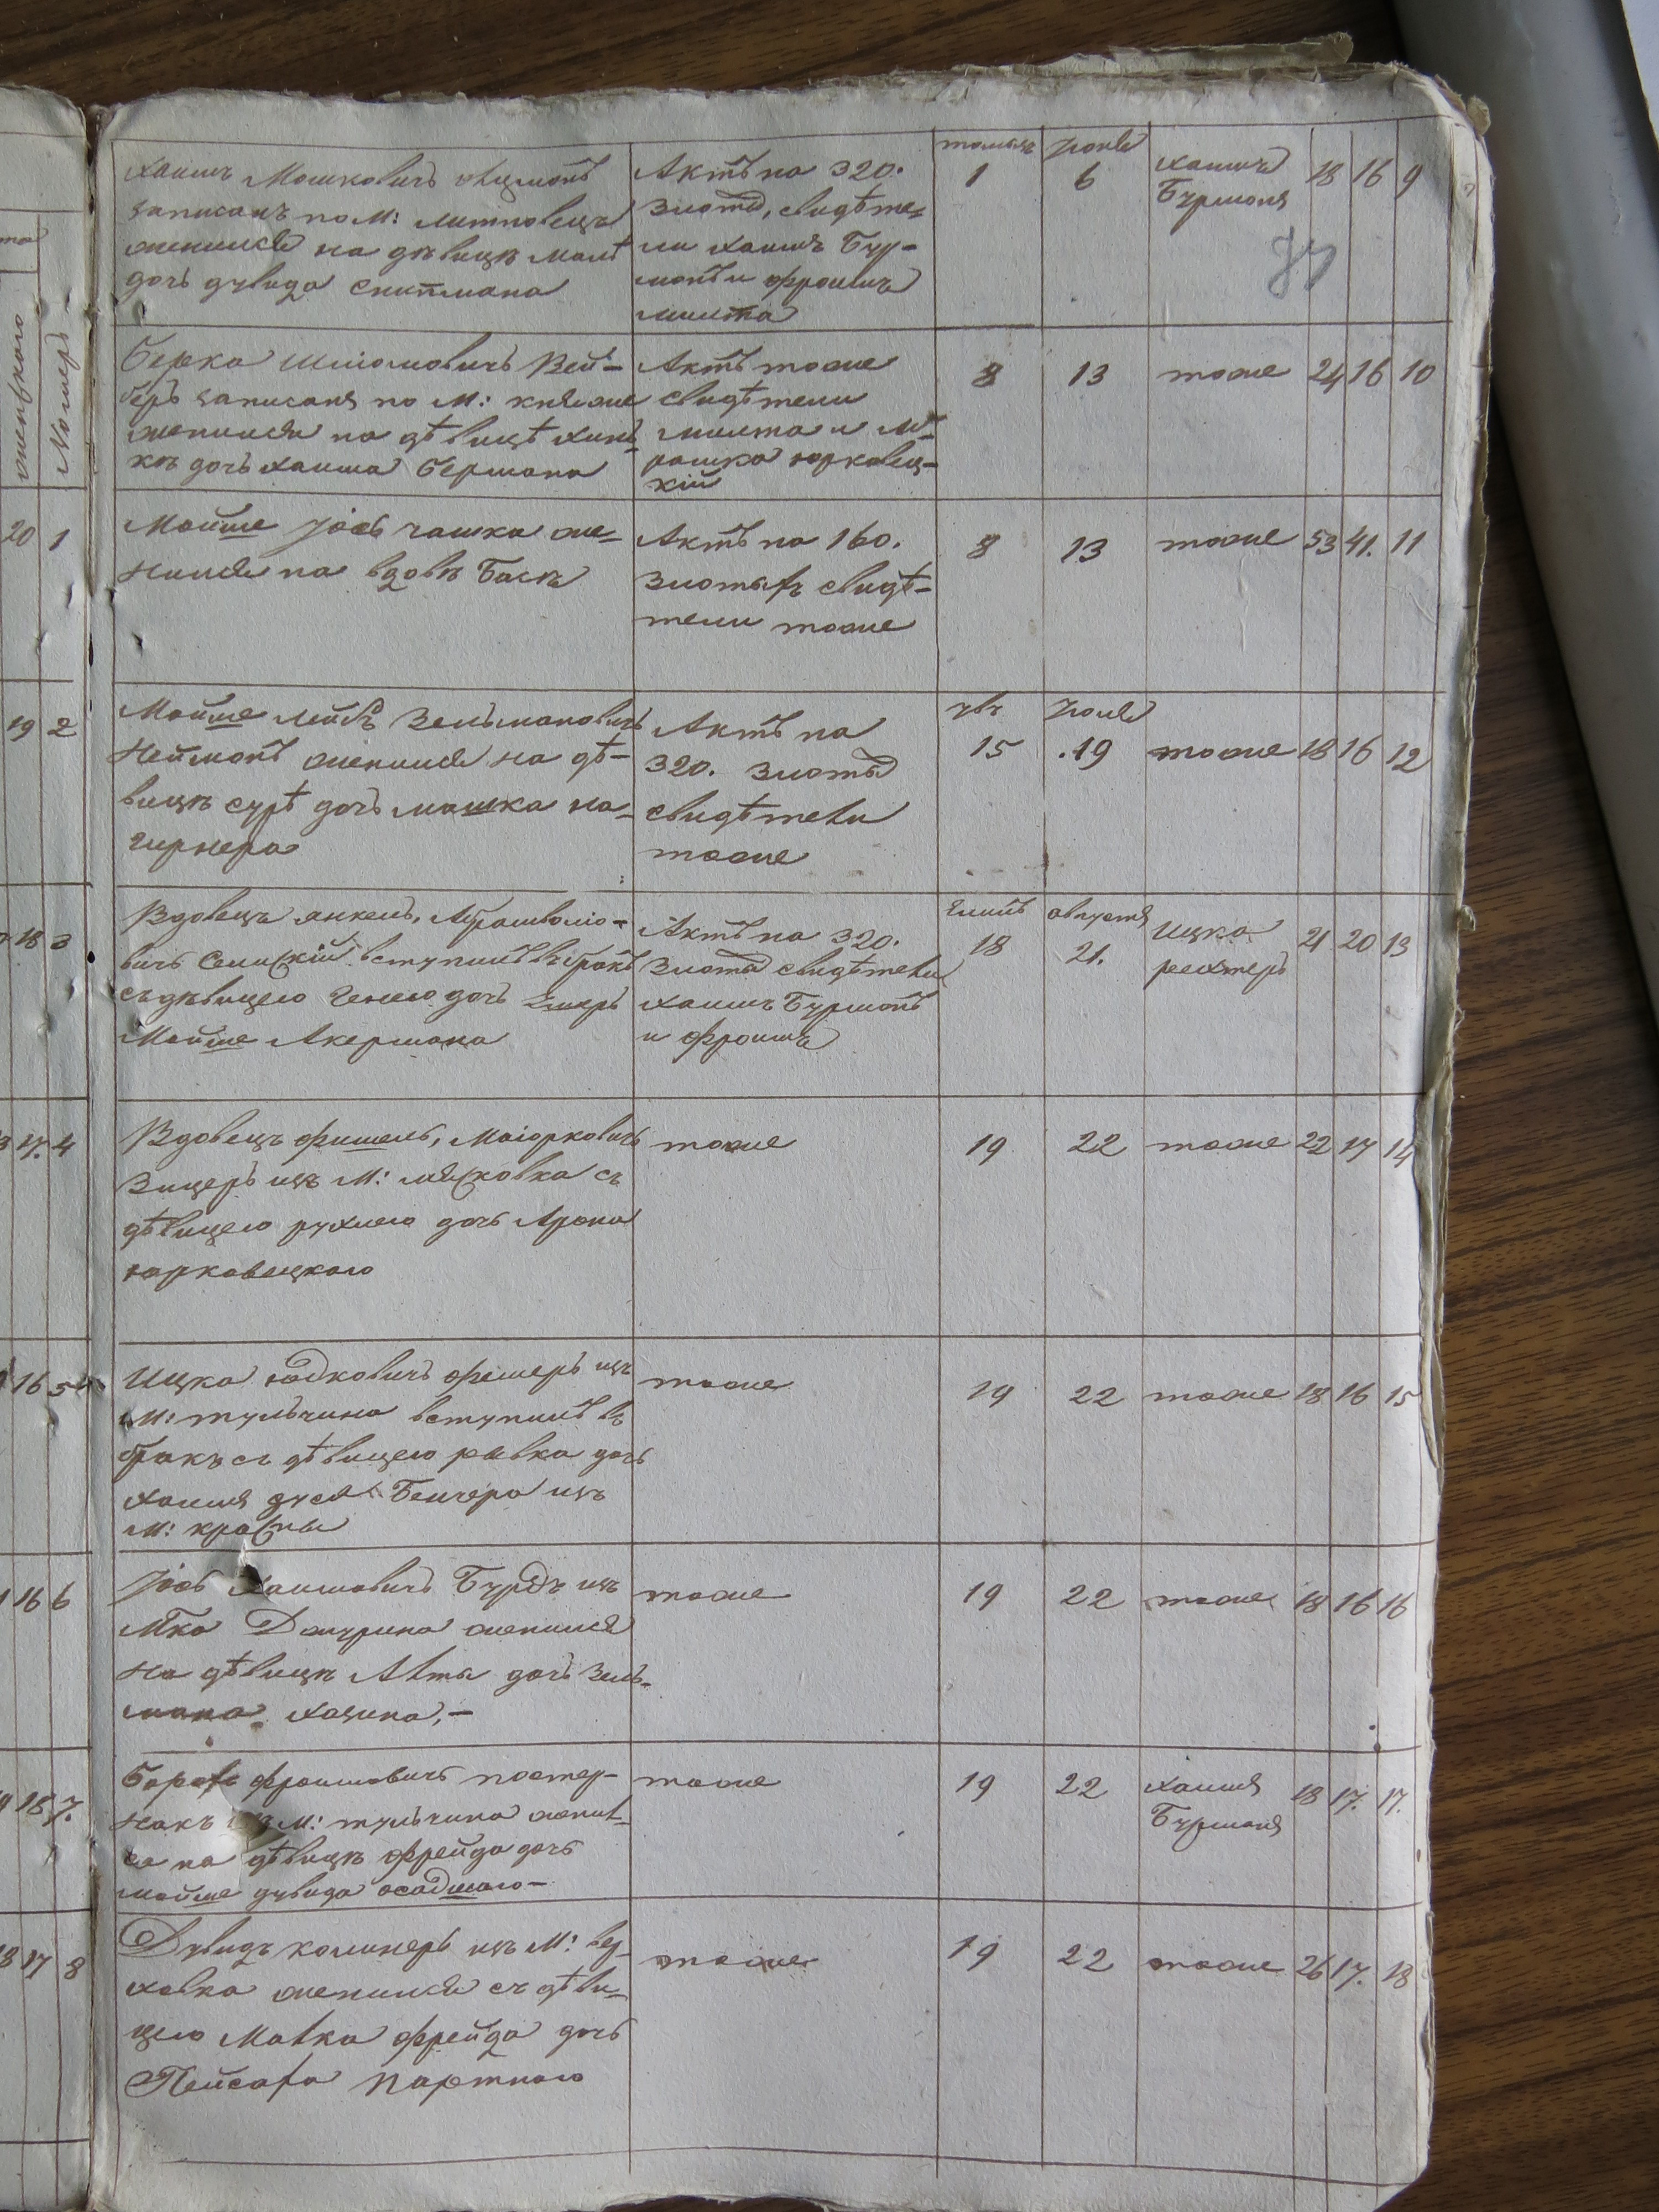 Хаимъ Мошковичъ
записанъ по М:
женился на дѣвицѣ
дочь дувида
Актъ на 320.
злоты, свидѣте-
ли хаимъ Бур-
манъ и фроимъ
милта
1
6
Хаимъ
Бурманъ
18 16 9
Берко Шліомовичъ Вей-
беръ записанъ по М: княже
женился на дѣвицѣ хин-
кѣ дочь хаима бермана
Актъ тоже
свидѣтели
милта и
рашко юрковец-
кій
8
13
тоже
24 16 10
Мойше Іось чашка же-
нился на вдовѣ Баскѣ
Актъ на 160.
злотыхъ свидѣ-
тели тоже
8
13
тоже
53 41. 11
Мойше лейбъ Зельмановичъ
Нейманъ женился на дѣ-
вицѣ сурѣ дочь мошка на-
гирнера
Актъ на
320. злоты
свидѣтели
тоже
15
19
тоже
18 16 12
Вдовецъ янкель,
вичъ вступилъ въ бракъ
съ дѣвицею Генею дочь
Мойше Акермана
Актъ на 320.
злоты свидѣтели
хаимъ Бурманъ
и фроимъ
18
августа
21.
Ицко
рехтеръ
21 20 13
Вдовецъ фишель, Маіорковичъ
Зицеръ изъ М: мясковка съ
дѣвицею рухлею дочь Арона
юрковецкого
тоже
19
22
тоже
22 17 14
Ицко юдковичъ фишеръ изъ
М: тульчина вступилъ въ
бракъ съ дѣвицею рывка дочь
хаима Бенчера изъ
М: красны
тоже
19
22
тоже
18 16 15
Іось Хаимовичъ изъ
Мка Джурина женился
на дѣвицѣ Алты дочь Зель-
мана хацина,-
тоже
19
22
тоже
18 16 16
Борохъ фроимовичъ постер-
накъ изъ М: тульчина женил-
ся на дѣвицѣ фрейда дочь
мойше дувида осадшого-
тоже
19
22
Хаимъ
Бурманъ
18 17. 17.
Дувидъ колинеръ изъ М: вер-
ховка женился съ дѣви-
цею Малка фрейда дочь
Пейсаха партного
тоже
19
22
тоже
26 17. 18
Номеръ
20 1
19 2
18 3
17. 4
16 5
16 6
18 7.
18 17 8